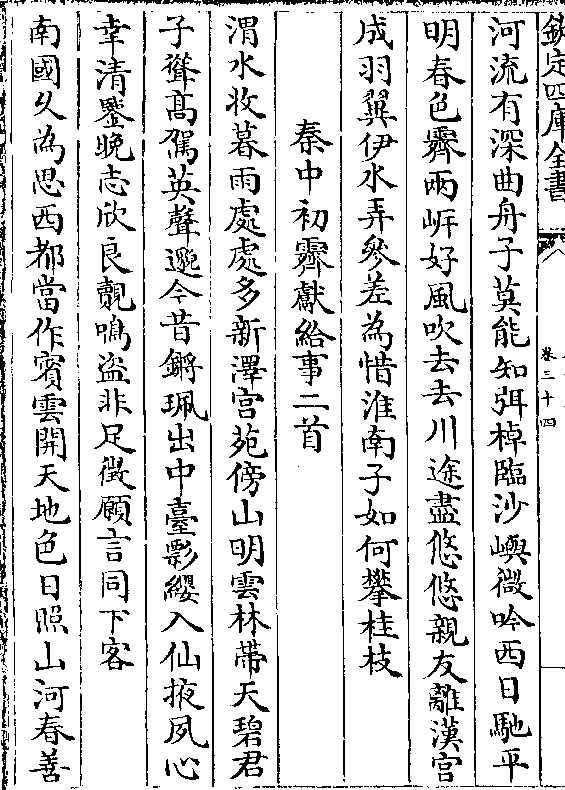 欽定四庫全書
卷三十四
河流有深曲舟子莫能知弭棹臨沙嶼微吟西日馳平
明春色霽兩岸好風吹去去川途盡悠悠親友離漢宫
成羽翼伊水弄參差為惜淮南子如何攀桂枝
秦中初霽獻給事二首
渭水收暮雨處處多新澤宫苑傍山明雲林帶天碧君
子聳髙駕英聲邈今昔鏘珮出中臺影纓入仙掖夙心
幸清鑒晚志欣良覿鳴盜非足徵願言同下客
南國久為思西都當作賓雲開天地色日照山河春善